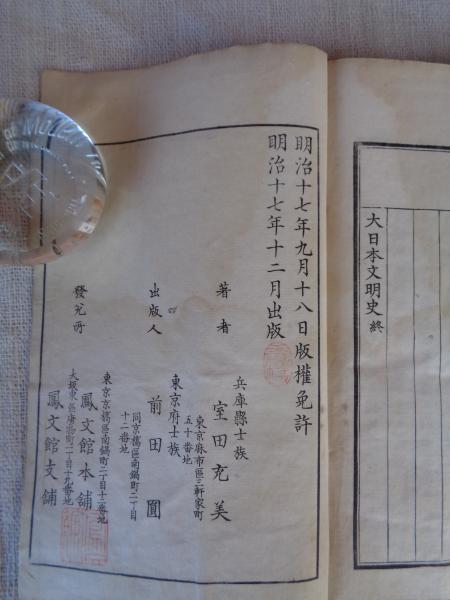 大日本文明史 終
明治十七年九月十八日版權免許
明治十七年十二月出版
著者
兵庫縣士族
室田充美
東京麻布區三軒家町
五十番地
出版人
東京府士族
前田圓
同京橋區南鍋町二丁目
十二番地
發兌所
東京京橋區南鍋町二丁目十二番地
鳳文館本舗
大坂東區唐物町二丁目十九番地
鳳文館支舗